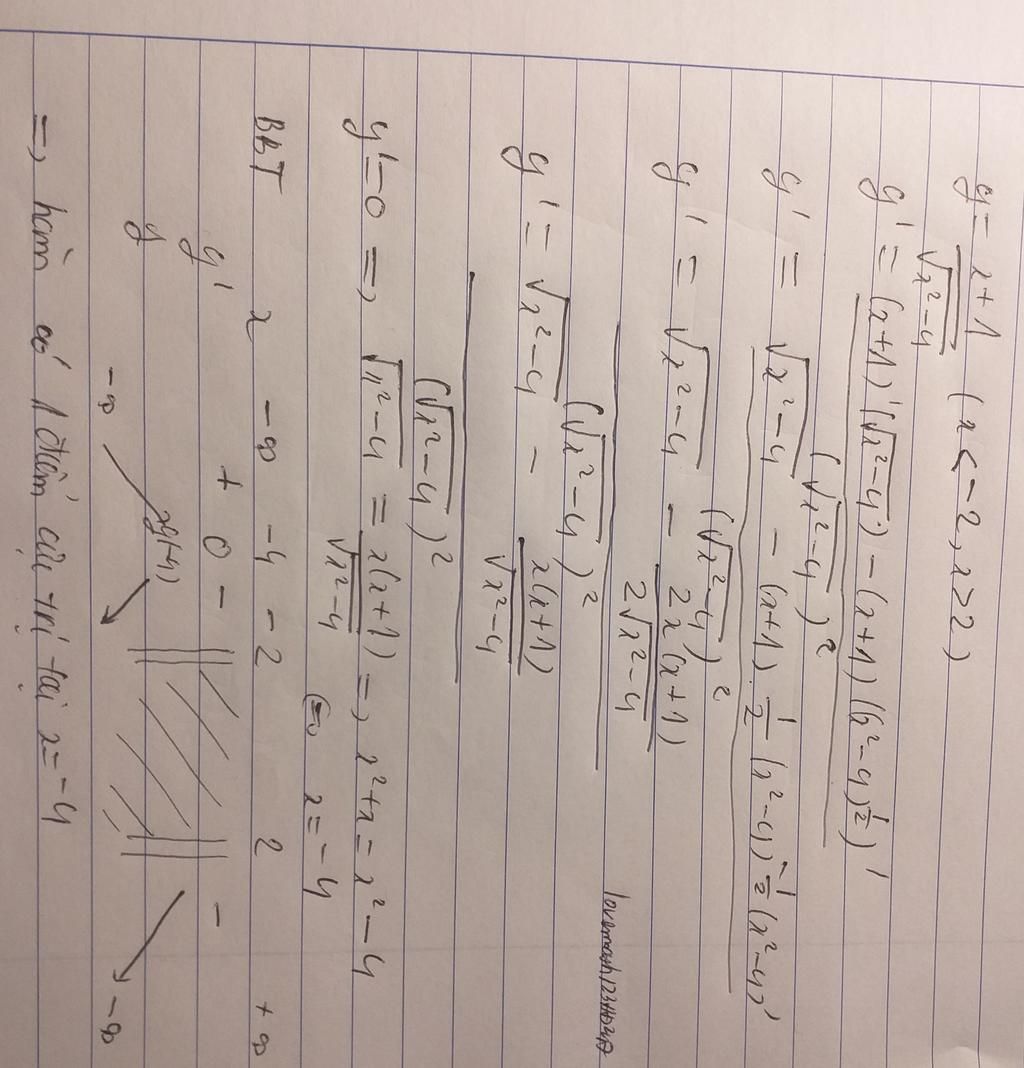 y = x+1 / √(x²-4) (x<-2, x>2)
y' = (x+1)'(√(x²-4)) - (x+1)((x²-4)^(1/2))' / (√(x²-4))²
y' = √(x²-4) - (x+1) 1/2 (x²-4)^(-1/2) (x²-4)' / (√(x²-4))²
y' = √(x²-4) - 2x(x+1) / 2√(x²-4) / (√(x²-4))²
y' = √(x²-4) - x(x+1) / √(x²-4) / (√(x²-4))²
y'=0 => √(x²-4) = x(x+1) / √(x²-4) => x²+x = x²-4
⇔ x=-4
BBT x -∞ -4 -2 2 +∞
y' + 0 - -
y y(-4)
-∞ -∞
=> hàm có 1 điểm cực trị tại x=-4